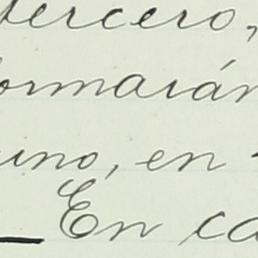 tercero,
formarán
uno, en
En ca